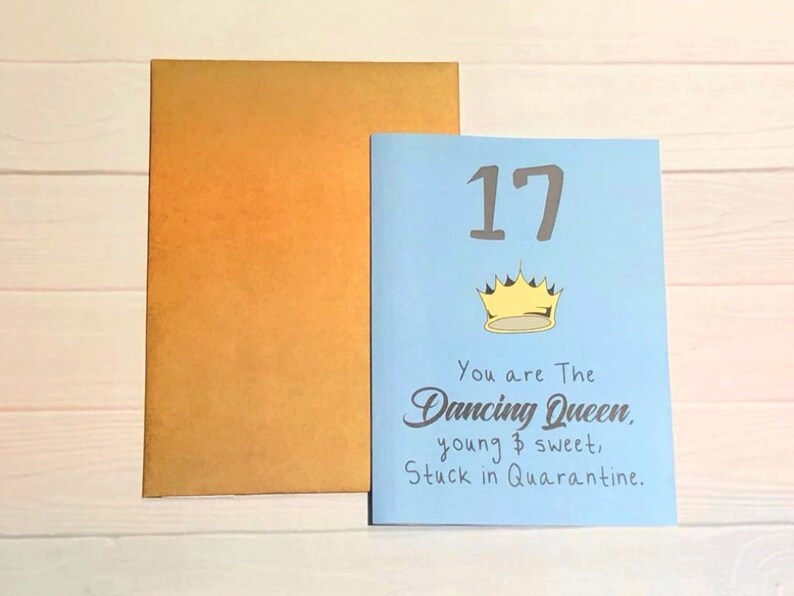 17
You are The
Dancing Queen,
young & sweet,
Stuck in Quarantine.